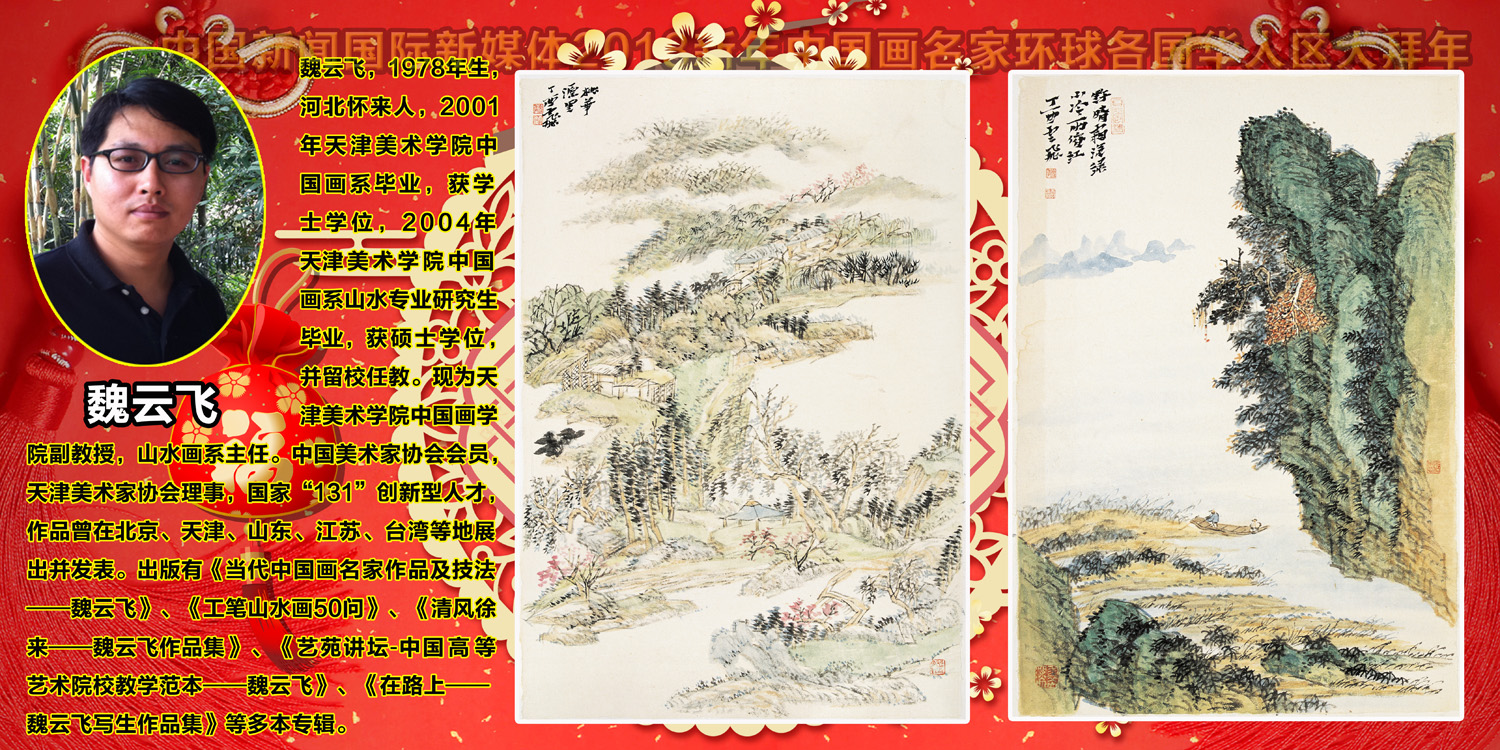 中国新闻国际新媒体2018新年中国画名家环球各国华人区大拜年
魏云飞，1978年生，
河北怀来人，2001
年天津美术学院中
国画系毕业，获学
士学位，2004年
天津美术学院中国
画系山水专业研究生
毕业，获硕士学位，
并留校任教。现为天
津美术学院中国画学
院副教授，山水画系主任。中国美术家协会会员，
天津美术家协会理事，国家“131”创新型人才，
作品曾在北京、天津、山东、江苏、台湾等地展
出并发表。出版有《当代中国画名家作品及技法
——魏云飞》、《工笔山水画50问》、《清风徐
来——魏云飞作品集》、《艺苑讲坛-中国高等
艺术院校教学范本——魏云飞》、《在路上——
魏云飞写生作品集》等多本专辑。
魏云飞
丁酉云飛